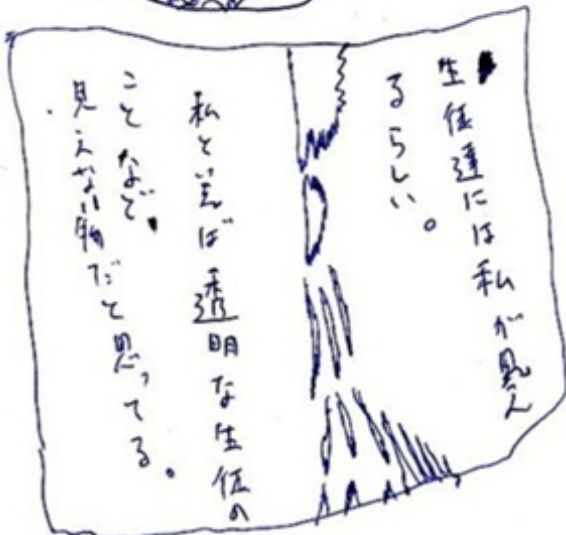 生徒達には私が見え
るらしい。
私と言えば透明な生徒の
ことなど
見えない物だと思ってる。